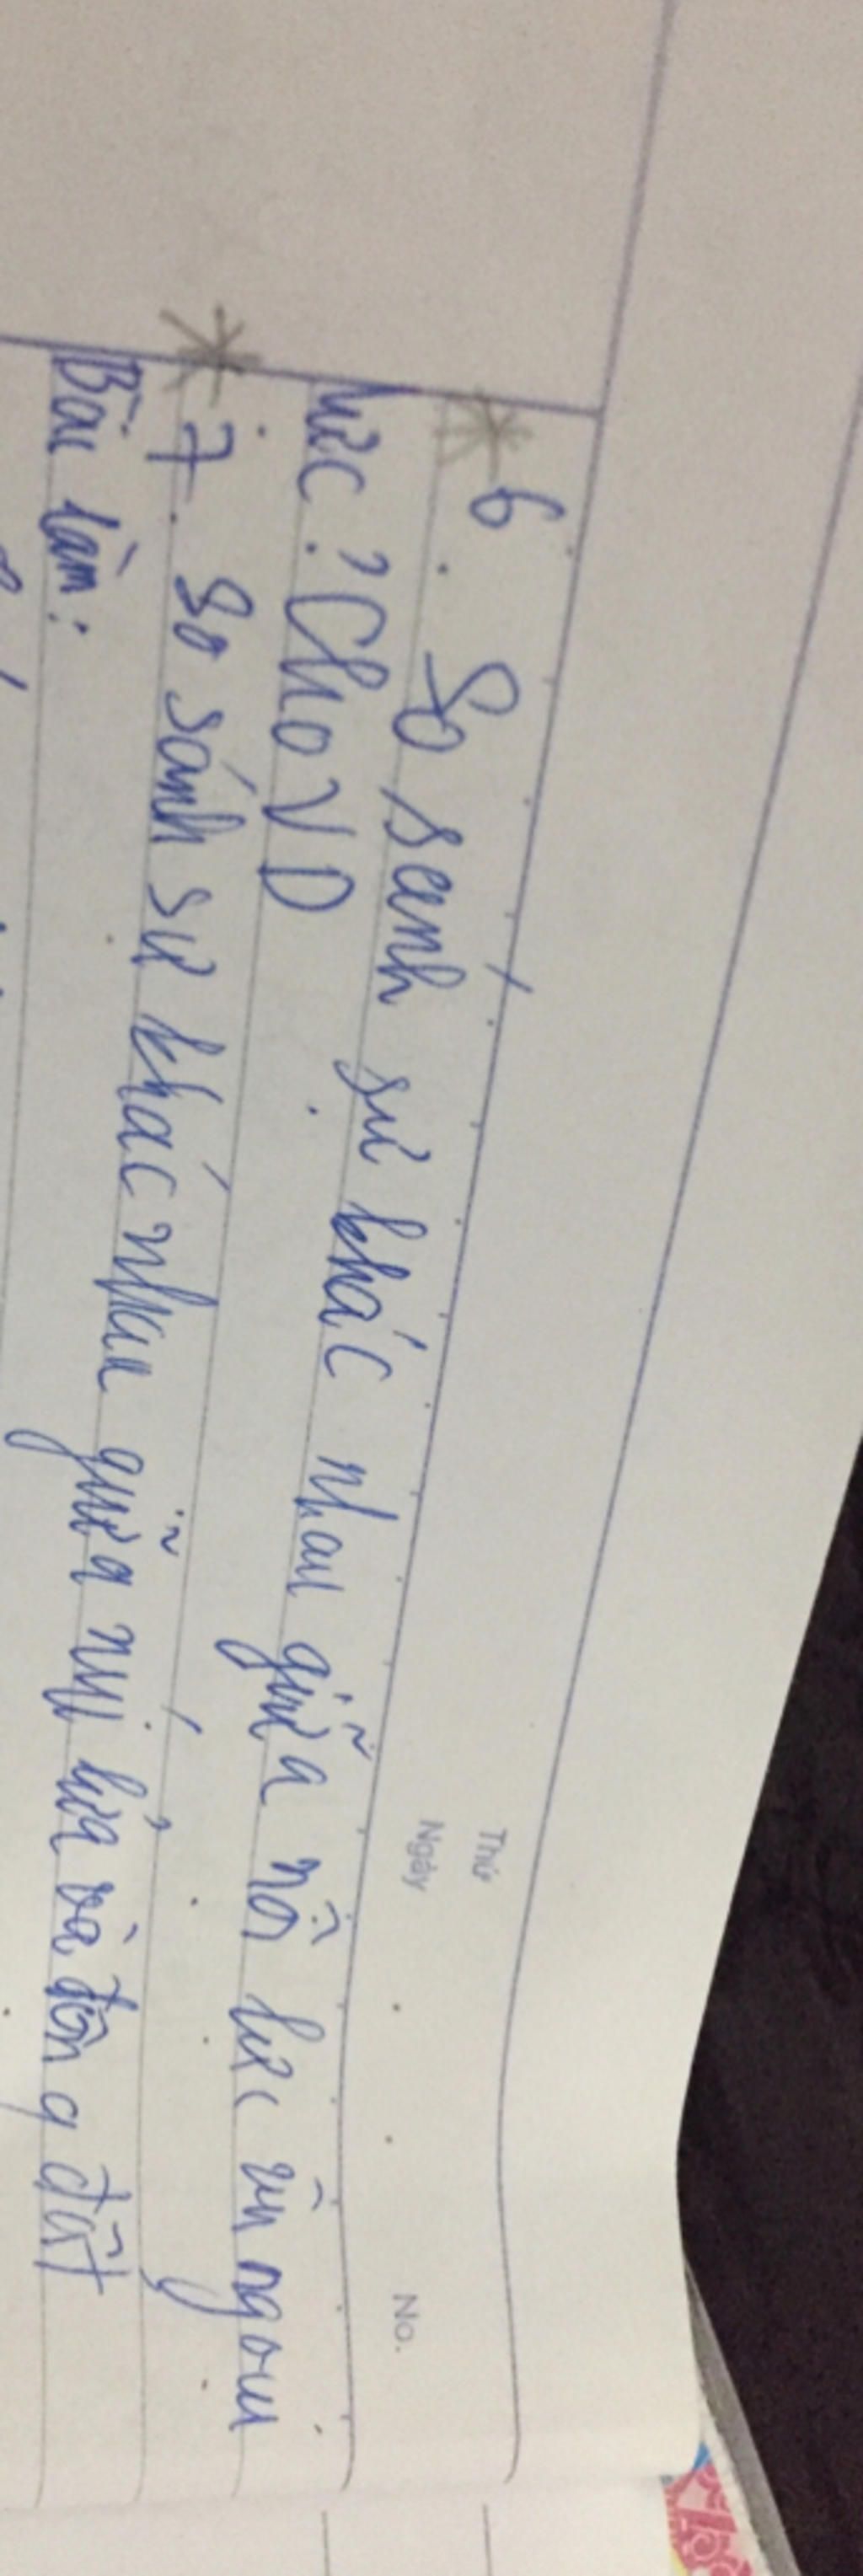 Thứ
Ngày
No.
6. So sánh sự khác nhau giữa nội lực và ngoại
lực? Cho VD
7. So sánh sự khác nhau giữa núi lửa và động đất
Bài làm: